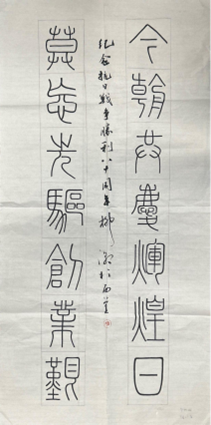 今朝共慶煇煌日
莫忘先驅創業艱
纪念抗日戰争勝利八十周年柳